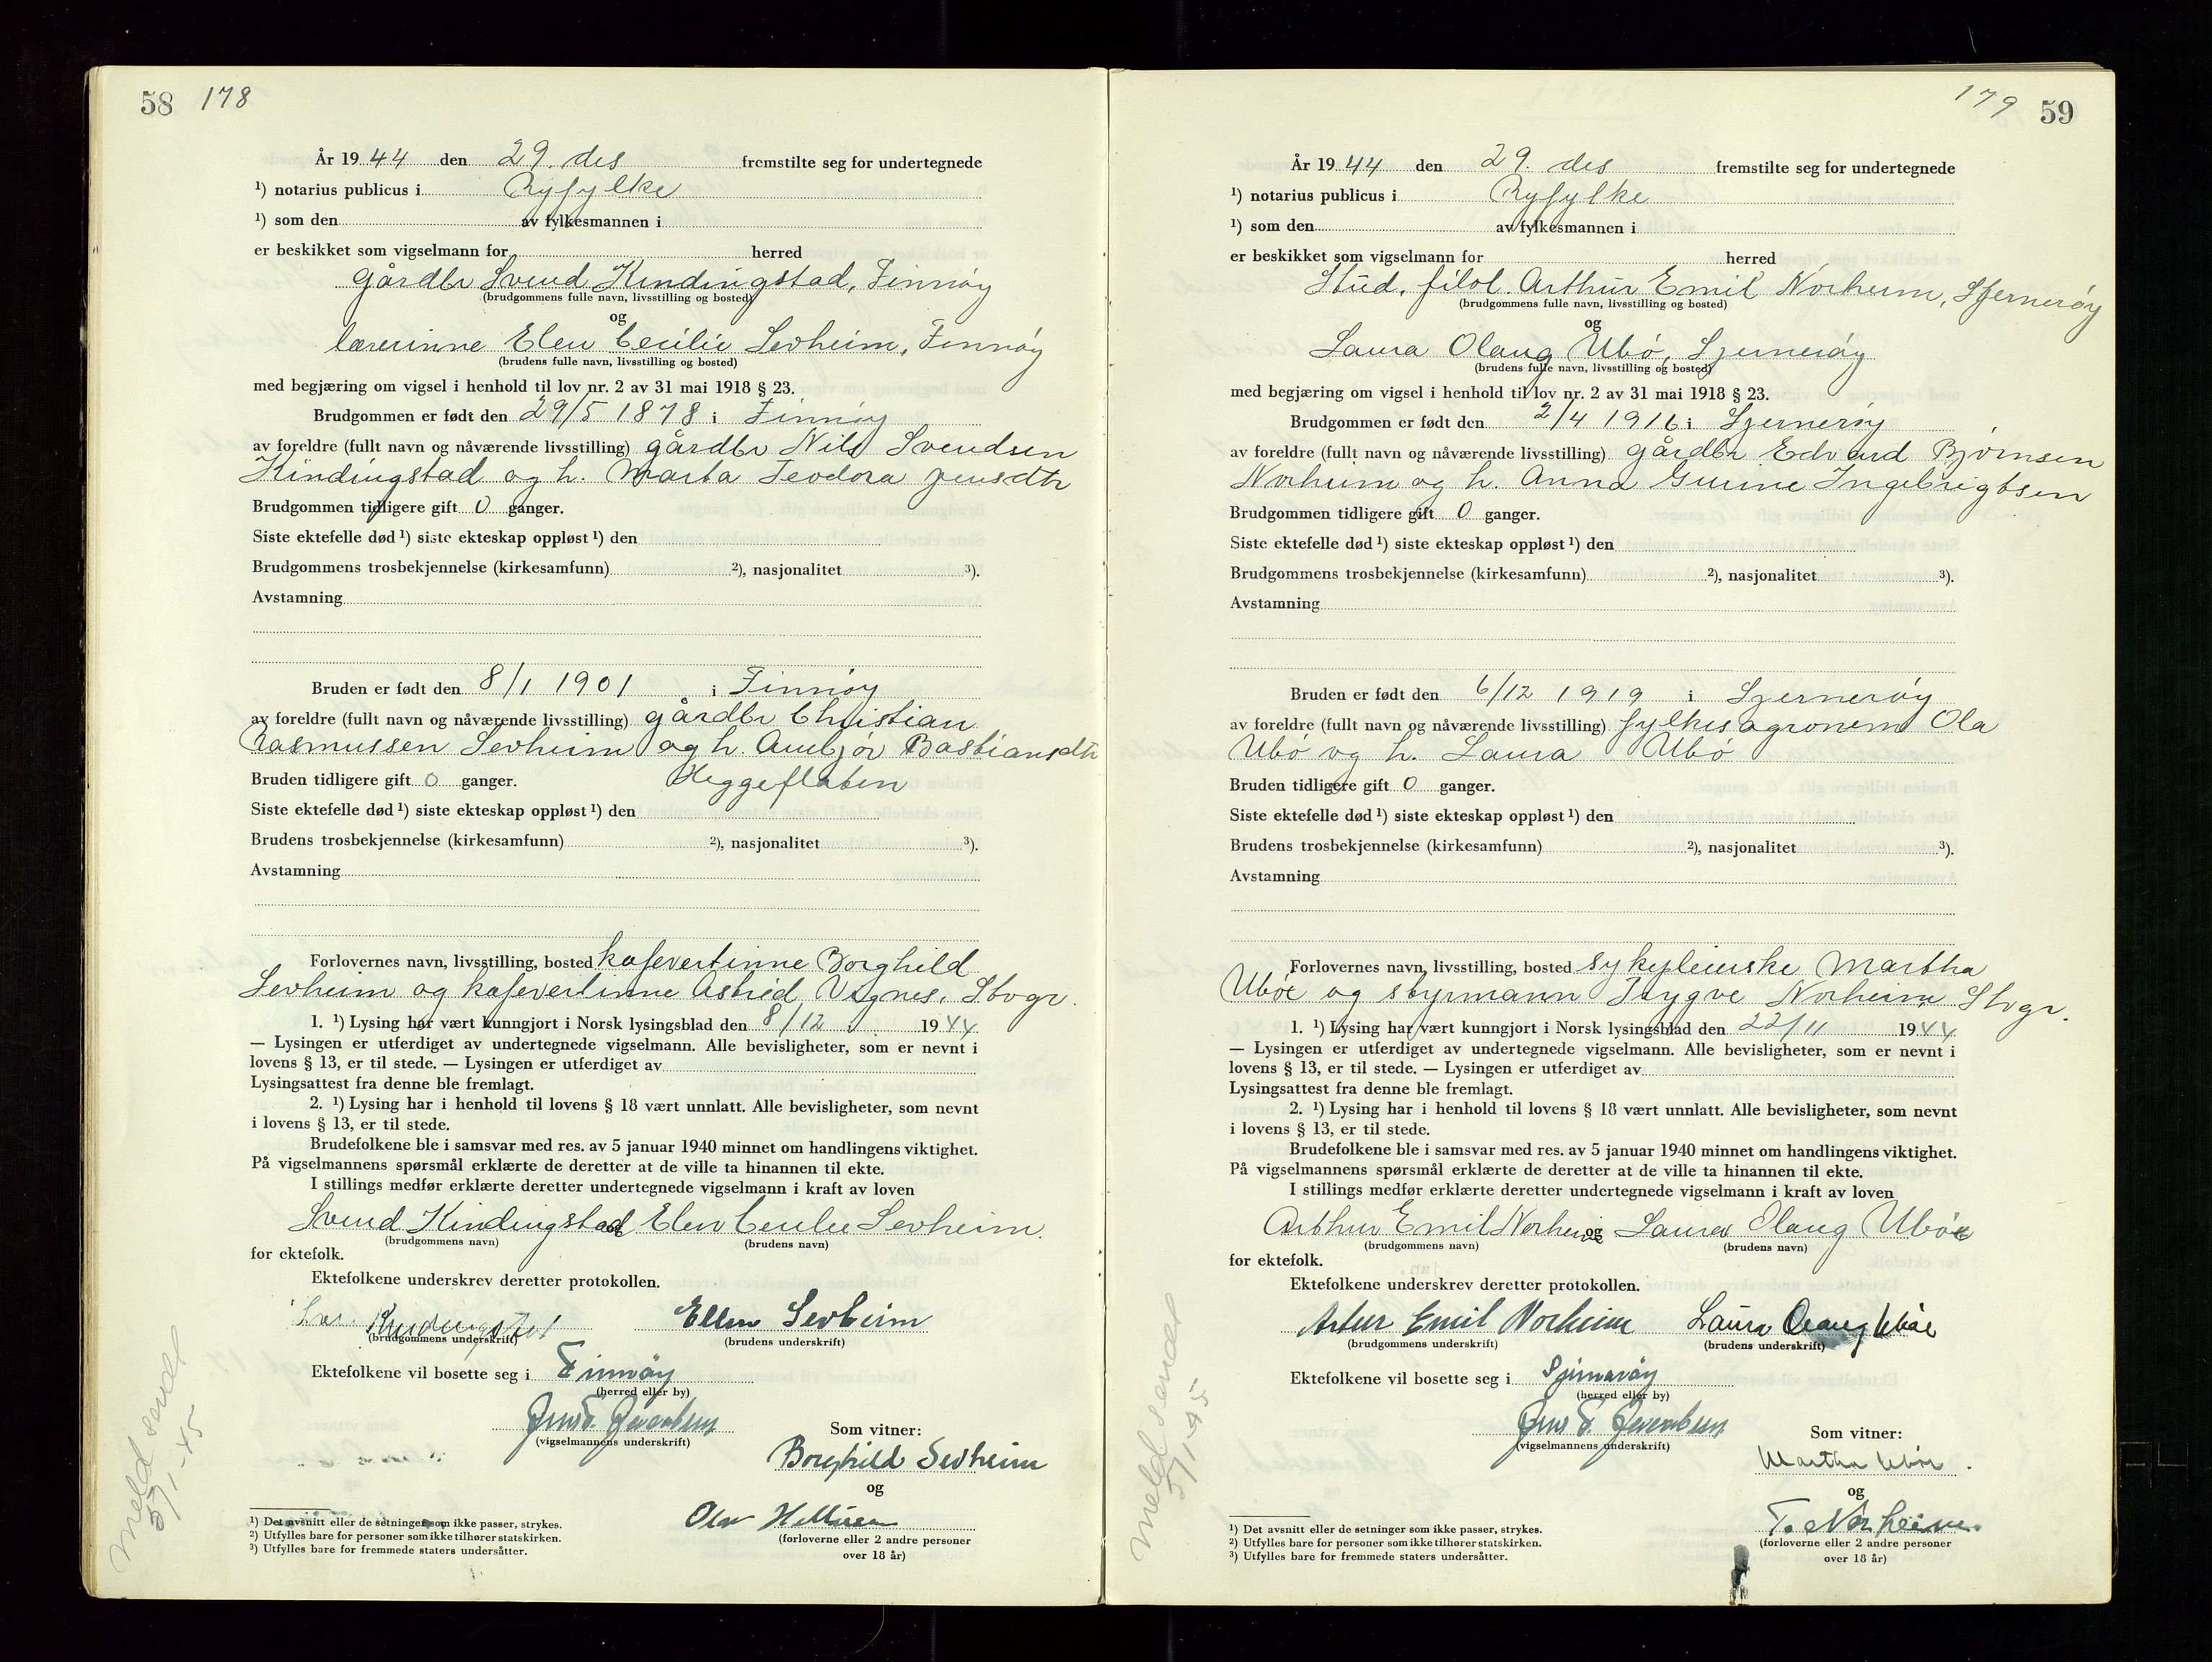 58 178
År 1944 den 29. des fremstilte seg for undertegnede
¹) notarius publicus i Ryfylke
¹) som den av fylkesmannen i
er beskikket som vigselmann for herred
gårdbr Svend Kindingstad, Finnøy
(brudgommens fulle navn, livsstilling og bosted)
og
lærerinne Elen Cecilie Sevheim, Finnøy
(brudens fulle navn, livsstilling og bosted)
med begjæring om vigsel i henhold til lov nr. 2 av 31 mai 1918 § 23.
Brudgommen er født den 29/5 1878 i Finnøy
av foreldre (fullt navn og nåværende livsstilling) gårdbr Nils Svendsen
Kindingstad og h. Marta Teodora Jensdtr
Brudgommen tidligere gift 0 ganger.
Siste ektefelle død ¹) siste ekteskap oppløst ¹) den
Brudgommens trosbekjennelse (kirkesamfunn) ²), nasjonalitet ³).
Avstamning
Bruden er født den 8/1 1901 i Finnøy
av foreldre (fullt navn og nåværende livsstilling) gårdbr Christian
Rasmussen Sevheim og h. Anbjør Bastiansdtr
Bruden tidligere gift 0 ganger. Heggeflaten
Siste ektefelle død ¹) siste ekteskap oppløst ¹) den
Brudens trosbekjennelse (kirkesamfunn) ²), nasjonalitet ³).
Avstamning
Forlovernes navn, livsstilling, bosted kafevertinne Borghild
Sevheim og kafevertinne Astrid Vignes, Stvgr.
1. ¹) Lysing har vært kunngjort i Norsk lysingsblad den 8/12 1944
— Lysingen er utferdiget av undertegnede vigselmann. Alle bevisligheter, som er nevnt i
lovens § 13, er til stede. — Lysingen er utferdiget av
Lysingsattest fra denne ble fremlagt.
2. ¹) Lysing har i henhold til lovens § 18 vært unnlatt. Alle bevisligheter, som nevnt
i lovens § 13, er til stede.
Brudefolkene ble i samsvar med res. av 5 januar 1940 minnet om handlingens viktighet.
På vigselmannens spørsmål erklærte de deretter at de ville ta hinannen til ekte.
I stillings medfør erklærte deretter undertegnede vigselmann i kraft av loven
Svend Kindingstad og Elen Cecilie Sevheim.
(brudgommens navn) (brudens navn)
for ektefolk.
Ektefolkene underskrev deretter protokollen.
Kindingstad Ellen Sevheim
(brudgommens underskrift) (brudens underskrift)
Ektefolkene vil bosette seg i Finnøy
(herred eller by)
(vigselmannens underskrift) Som vitner:
Borghild Sevheim
og
Olav
(forloverne eller 2 andre personer
over 18 år)
¹) Det avsnitt eller de setninger som ikke passer, strykes.
²) Utfylles bare for personer som ikke tilhører statskirken.
³) Utfylles bare for fremmede staters undersåtter.
Meld sendt
5/1-45
179 59
År 1944 den 29. des fremstilte seg for undertegnede
¹) notarius publicus i Ryfylke
¹) som den av fylkesmannen i
er beskikket som vigselmann for herred
Stud. filol. Arthur Emil Norheim, Sjernerøy
(brudgommens fulle navn, livsstilling og bosted)
og
Laura Olaug Ubø, Sjernerøy
(brudens fulle navn, livsstilling og bosted)
med begjæring om vigsel i henhold til lov nr. 2 av 31 mai 1918 § 23.
Brudgommen er født den 2/4 1916 i Sjernerøy
av foreldre (fullt navn og nåværende livsstilling) gårdbr Edvard Bjørnsen
Norheim og h. Anna Gurine Ingebrigtsen
Brudgommen tidligere gift 0 ganger.
Siste ektefelle død ¹) siste ekteskap oppløst ¹) den
Brudgommens trosbekjennelse (kirkesamfunn) ²), nasjonalitet ³).
Avstamning
Bruden er født den 6/12 1919 i Sjernerøy
av foreldre (fullt navn og nåværende livsstilling) fylkesagronem Ola
Ubø og h. Laura Ubø
Bruden tidligere gift 0 ganger.
Siste ektefelle død ¹) siste ekteskap oppløst ¹) den
Brudens trosbekjennelse (kirkesamfunn) ²), nasjonalitet ³).
Avstamning
Forlovernes navn, livsstilling, bosted sykepleierske Martha
Ubøe og styrmann Trygve Norheim Stvgr.
1. ¹) Lysing har vært kunngjort i Norsk lysingsblad den 22/11 1944
— Lysingen er utferdiget av undertegnede vigselmann. Alle bevisligheter, som er nevnt i
lovens § 13, er til stede. — Lysingen er utferdiget av
Lysingsattest fra denne ble fremlagt.
2. ¹) Lysing har i henhold til lovens § 18 vært unnlatt. Alle bevisligheter, som nevnt
i lovens § 13, er til stede.
Brudefolkene ble i samsvar med res. av 5 januar 1940 minnet om handlingens viktighet.
På vigselmannens spørsmål erklærte de deretter at de ville ta hinannen til ekte.
I stillings medfør erklærte deretter undertegnede vigselmann i kraft av loven
Arthur Emil Norheim og Laura Olaug Ubøe
(brudgommens navn) (brudens navn)
for ektefolk.
Ektefolkene underskrev deretter protokollen.
Artur Emil Norheim Laura Olaug Ubøe
(brudgommens underskrift) (brudens underskrift)
Ektefolkene vil bosette seg i Sjernarøy
(herred eller by)
(vigselmannens underskrift) Som vitner:
Martha Ubøe.
og
T. Norheim.
(forloverne eller 2 andre personer
over 18 år)
¹) Det avsnitt eller de setninger som ikke passer, strykes.
²) Utfylles bare for personer som ikke tilhører statskirken.
³) Utfylles bare for fremmede staters undersåtter.
Meld sendt
5/1-45